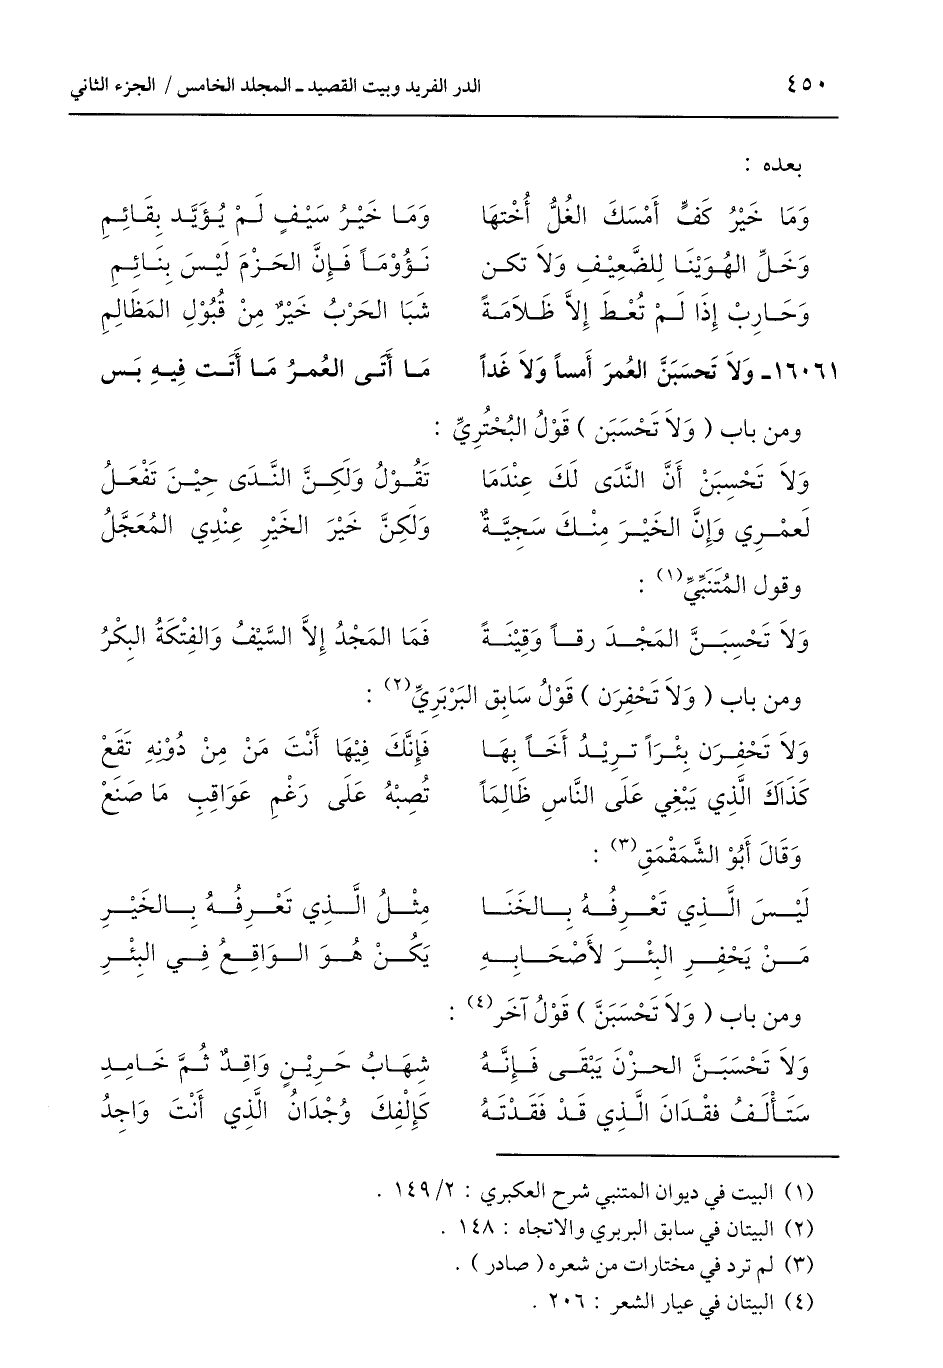 ٤٥٠ الدر الفريد وبيت القصيد ـ المجلد الخامس / الجزء الثاني
بعده :
وَمَا خَيْرُ كَفٍّ أَمْسَكَ الغُلُّ أُخْتهَا وَمَا خَيْرُ سَيْفٍ لَمْ يُؤَيَّد بِقَائِمِ
وَخَلِّ الهُوَيْنَا لِلضَّعِيْفِ وَلاَ تكن نَؤُوْمَاً فَإِنَّ الحَزْمَ لَيْسَ بِنَائِمِ
وَحَارِبْ إِذَا لَمْ تُعْطَ إِلاَّ ظَلاَمَةً شَبَا الحَرْبُ خَيْرٌ مِنْ قُبُوْلِ المَظَالِمِ
١٦٠٦١ـ وَلاَ تَحسَبَنَّ العُمرَ أَمساً وَلاَ غَداً مَا أَتَى العُمرُ مَا أَتَت فِيهِ بَس
ومن باب ( وَلاَ تَحْسَبَن ) قَوْلُ البُحْتُرِيِّ :
وَلاَ تَحْسِبَنْ أَنَّ النَّدَى لَكَ عِنْدَمَا تَقُوْلُ وَلَكِنَّ النَّدَى حِيْنَ تَفْعَلُ
لَعمْرِي وَإِنَّ الخَيْرَ مِنْكَ سَجِيَّةٌ وَلَكِنَّ خَيْرَ الخَيْرِ عِنْدِي المُعَجَّلُ
وقول المُتَنَبِّيِّ(١) :
وَلاَ تَحْسِبَنَّ المَجْدَ رقاً وَقِيْنَةً فَمَا المَجْدُ إِلاَّ السَّيْفُ وَالفِتْكَةُ البِكْرُ
ومن باب ( وَلاَ تَحْفِرَن ) قَوْلُ سَابِق البَرْبَرِيِّ(٢) :
وَلاَ تَحْفِرَن بِئْرَاً تَرِيْدُ أَخَاً بِهَا فَإِنَّكَ فِيْهَا أَنْتَ مَنْ مِنْ دُوْنِهِ تَقَعْ
كَذَاكَ الَّذِي يَبْغِي عَلَى النَّاسِ ظَالِمَاً تُصِبْهُ عَلَى رَغْمٍ عَوَاقِبِ مَا صَنَعْ
وَقَالَ أَبُوْ الشَّمَقْمَقِ(٣) :
لَيْسَ الَّذِي تَعْرِفُهُ بِالخَنَا مِثْلُ الَّذِي تَعْرِفُهُ بِالخَيْرِ
مَنْ يَحْفِرِ البِئْرَ لأَصْحَابِهِ يَكُنْ هُوَ الوَاقِعُ فِي البِئْرِ
ومن باب ( وَلاَ تَحْسَبَنَّ ) قَوْلُ آخَر(٤) :
وَلاَ تَحْسَبَنَّ الحزْنَ يَبْقَى فَإِنَّهُ شِهَابُ حَرِيْنٍ وَاقِدٌ ثُمَّ خَامِدِ
سَتَأْلَفُ فِقْدَانَ الَّذِي قَدْ فَقَدْتَهُ كَإِلْفِكَ وُجْدَانُ الَّذِي أَنْتَ وَاجِدُ
(١) البيت في ديوان المتنبي شرح العكبري : ٢/ ١٤٩ .
(٢) البيتان في سابق البربري والاتجاه : ١٤٨ .
(٣) لم ترد في مختارات من شعره ( صادر ) .
(٤) البيتان في عيار الشعر : ٢٠٦ .